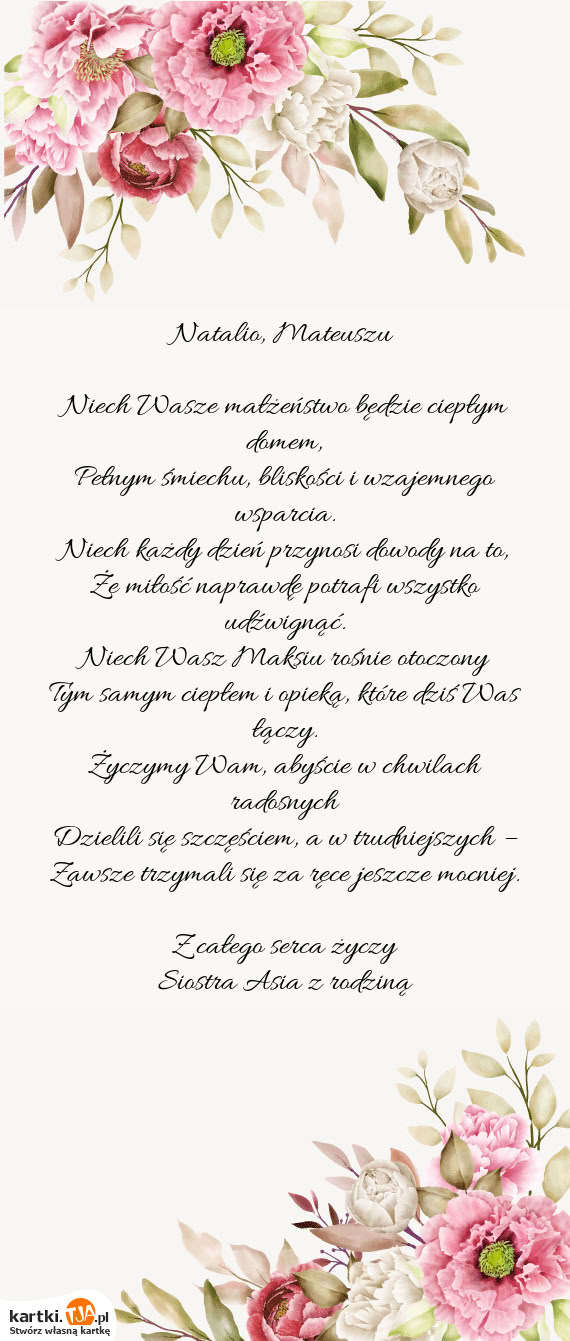 Natalio, Mateuszu
Niech Wasze małżeństwo będzie ciepłym
domem,
Pełnym śmiechu, bliskości i wzajemnego
wsparcia.
Niech każdy dzień przynosi dowody na to,
Że miłość naprawdę potrafi wszystko
udźwignąć.
Niech Wasz Maksiu rośnie otoczony
Tym samym ciepłem i opieką, które dziś Was
łączy.
Życzymy Wam, abyście w chwilach
radosnych
Dzielili się szczęściem, a w trudniejszych –
Zawsze trzymali się za ręce jeszcze mocniej.
Z całego serca życzy
Siostra Asia z rodziną
kartki.TJA.pl
Stwórz własną kartkę